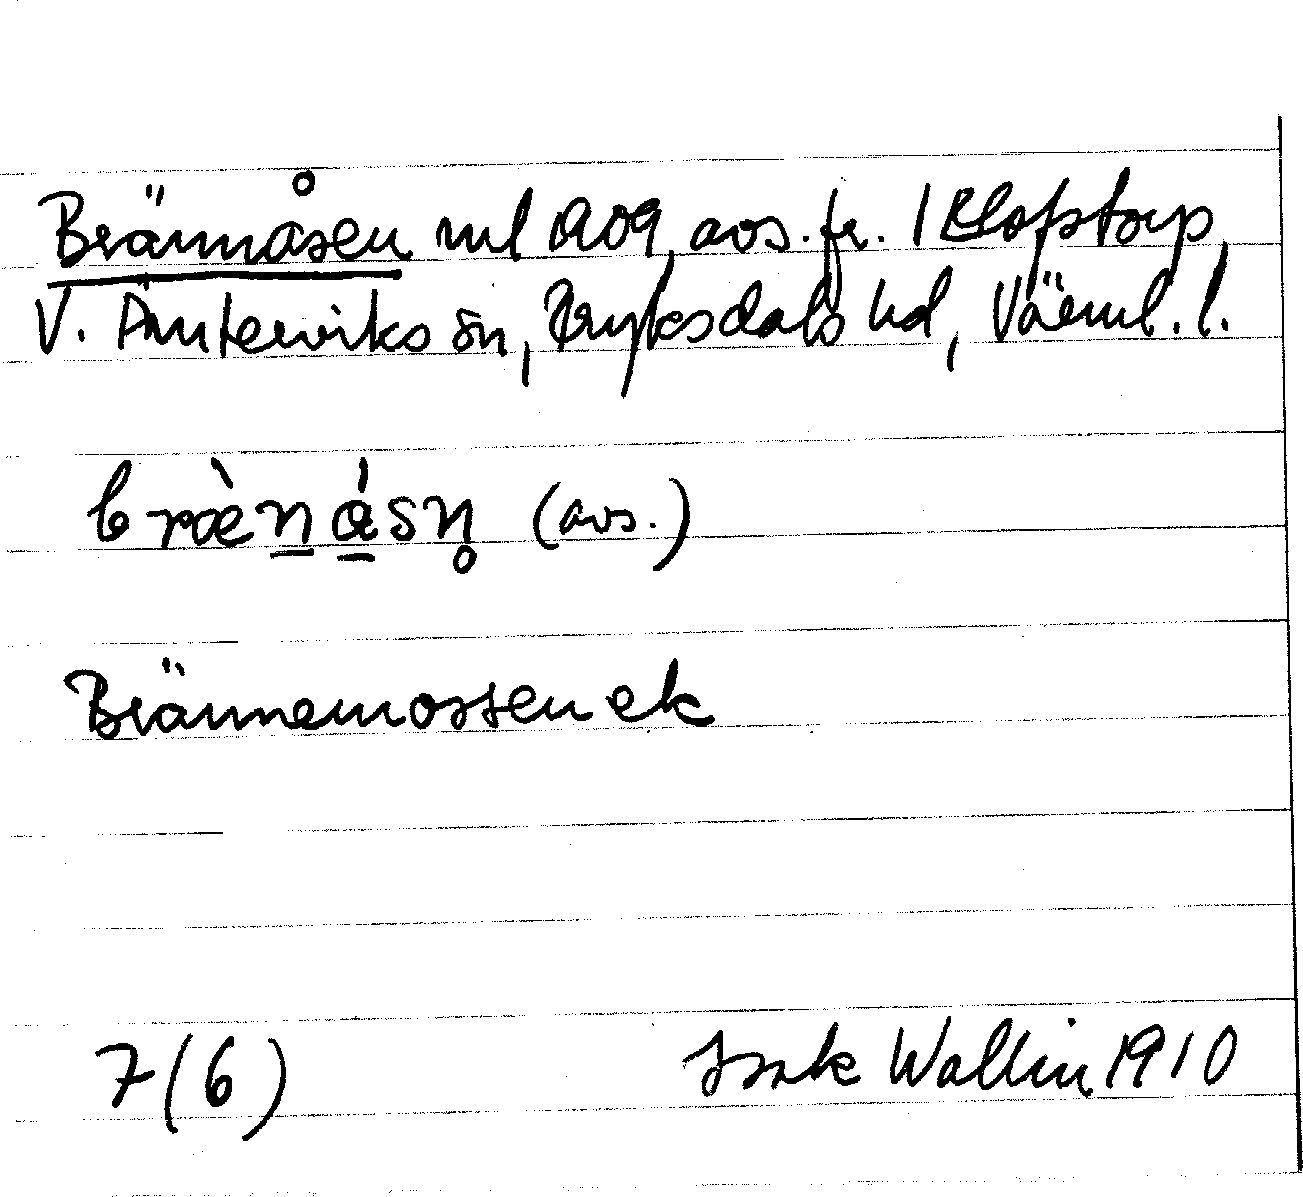 Brännåsen ml A09, avs. fr. 1 Klofstorp,
V. Ämterviks sn, Fryksdals hd, Värml. l.
bræ̀ná́sn̥ (avs.)
Brännemossen ek
7(6)
Isak Wallin 1910